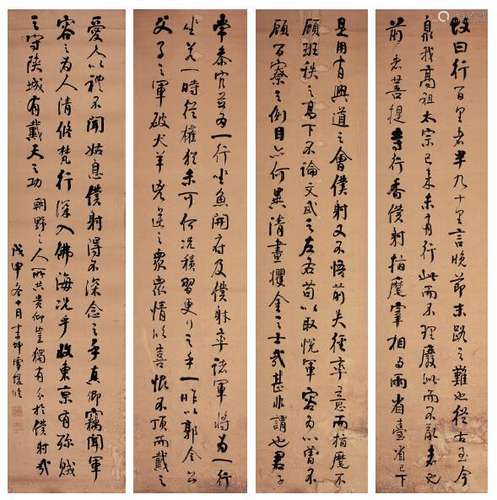 故曰行百里者半九十里言晚節末路之難也從古至今
泉我高祖太宗已来未有行此而不理廢此而不亂者也
前者菩提寺行香僕射指麾宰相与兩省臺省已下
是用有興道之會僕射又不悟前失徑率意而指麾不
顧班秩之高下不論文武之左右苟以取悦軍容為心曾不
顧百寮之側目亦何異清晝攫金之士哉甚非謂也君子
常參官并為一行坐魚開府及僕射率諸軍將為一行
坐若一時從權猶未可何況積習更行之乎一昨以郭令公
父子之軍破犬羊兇逆之衆衆情欣喜恨不頂而戴之
愛人以禮不聞姑息僕射得不深念之乎真卿竊聞軍
容之為人清修梵行深入佛海況乎收東京有殄賊
之守陝城有戴天之功朝野之人所共貴仰豈獨有分於僕射哉
戊申冬月書